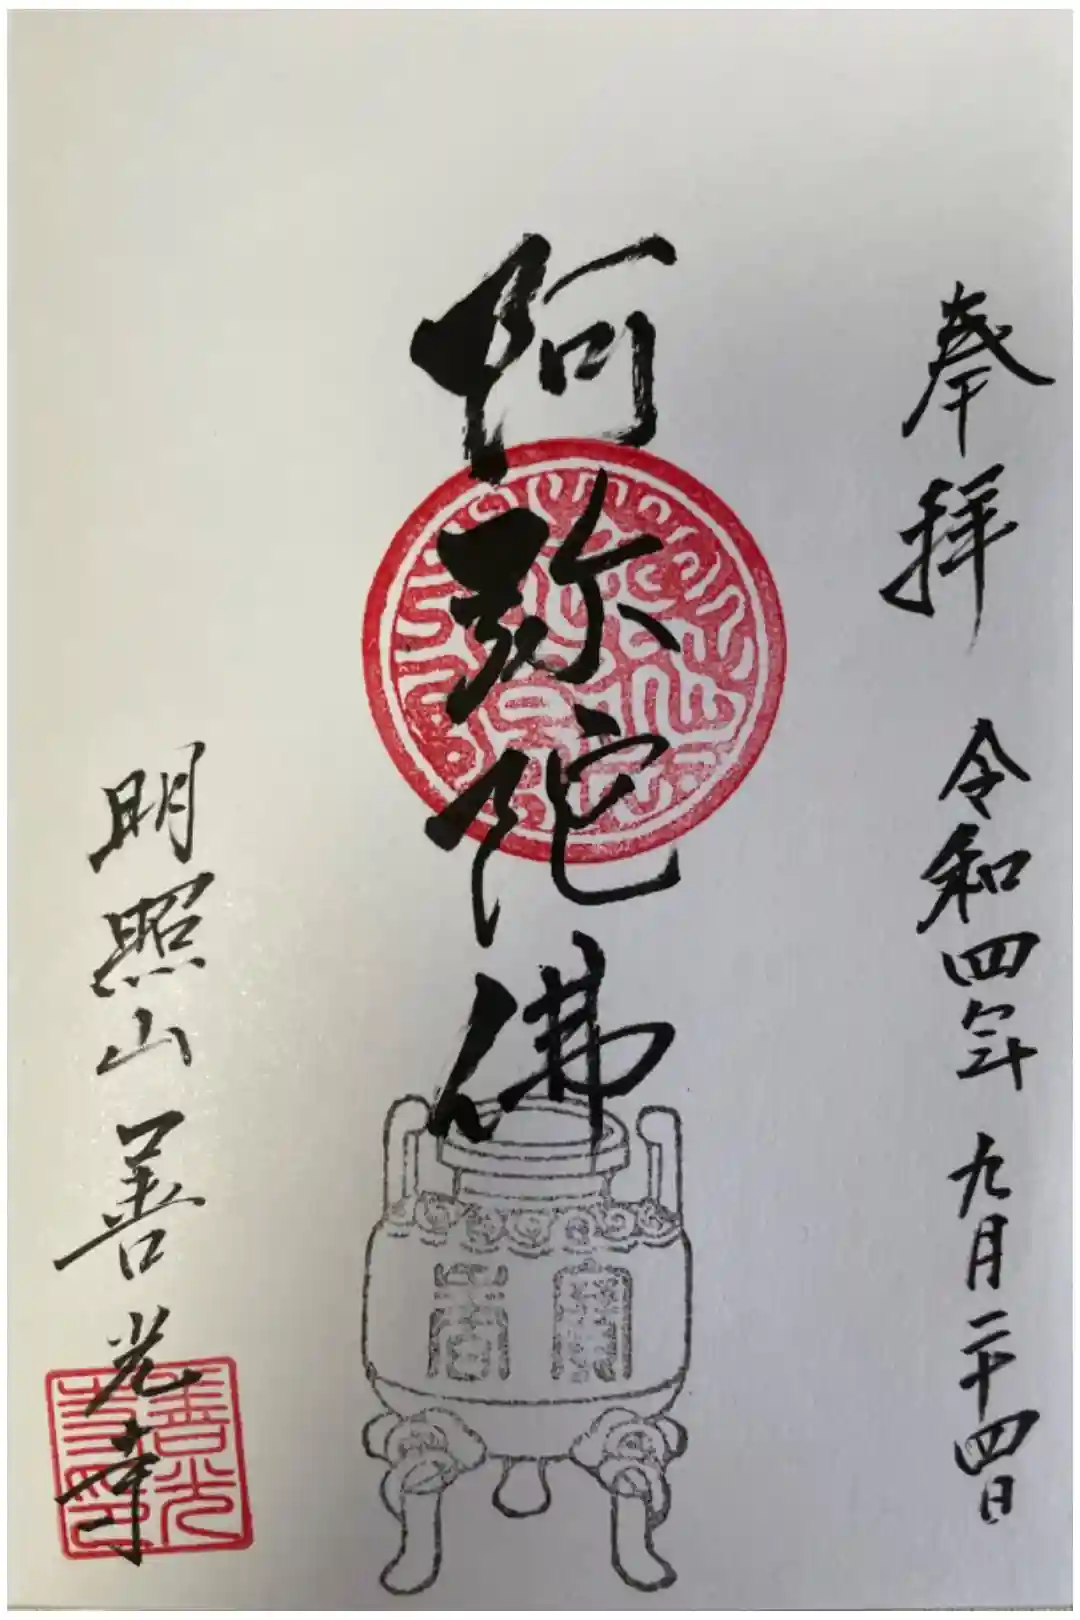 奉拝 令和四年 九月二十四日
阿弥陀佛
明照山 善光寺
善光
寺印